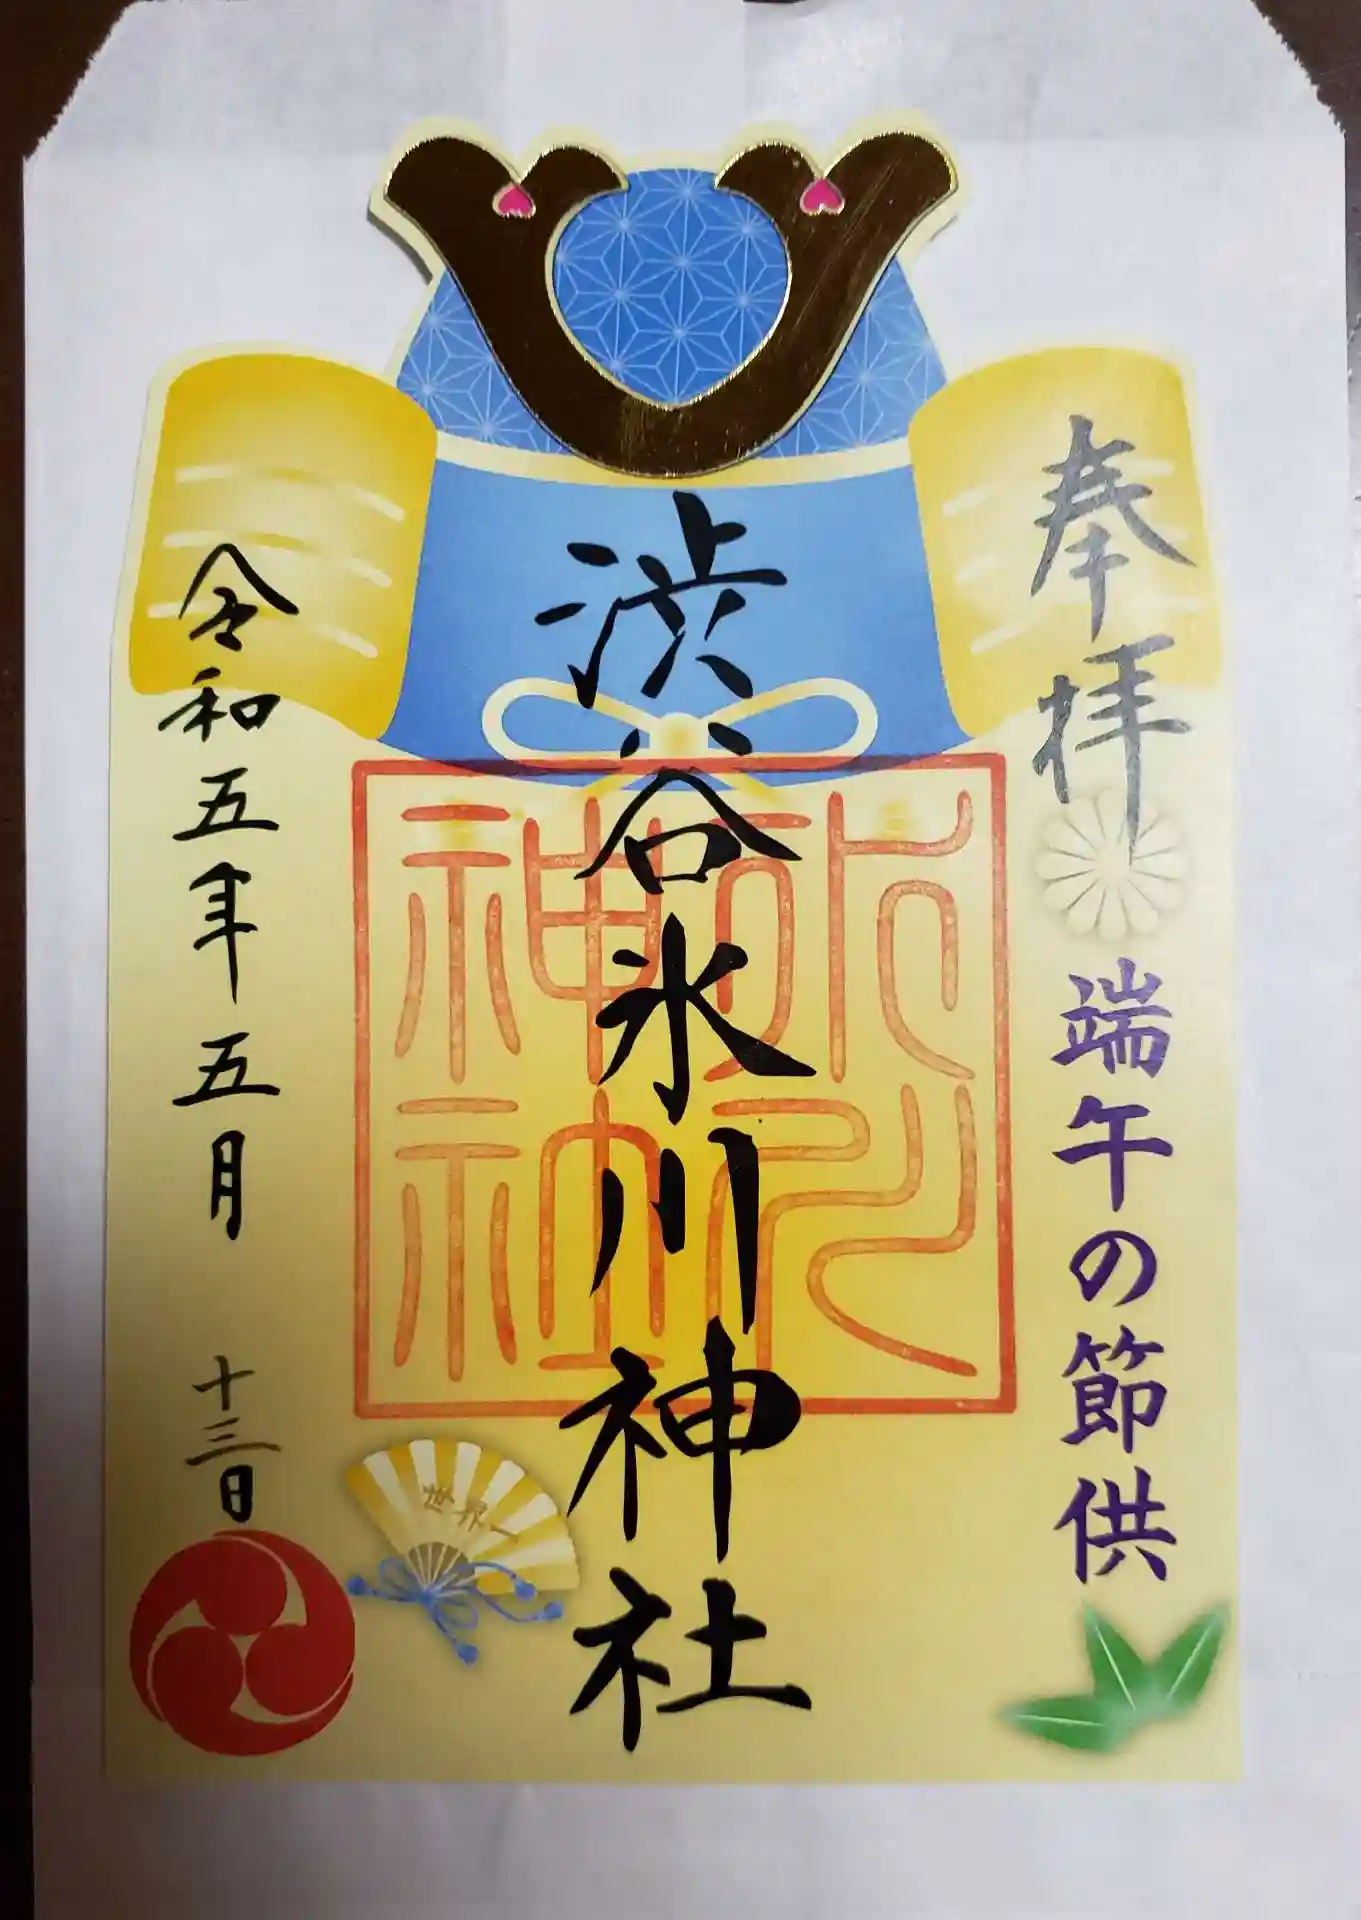 奉拝
端午の節供
渋谷氷川神社
氷川
神社
令和五年五月 十三日
世界一